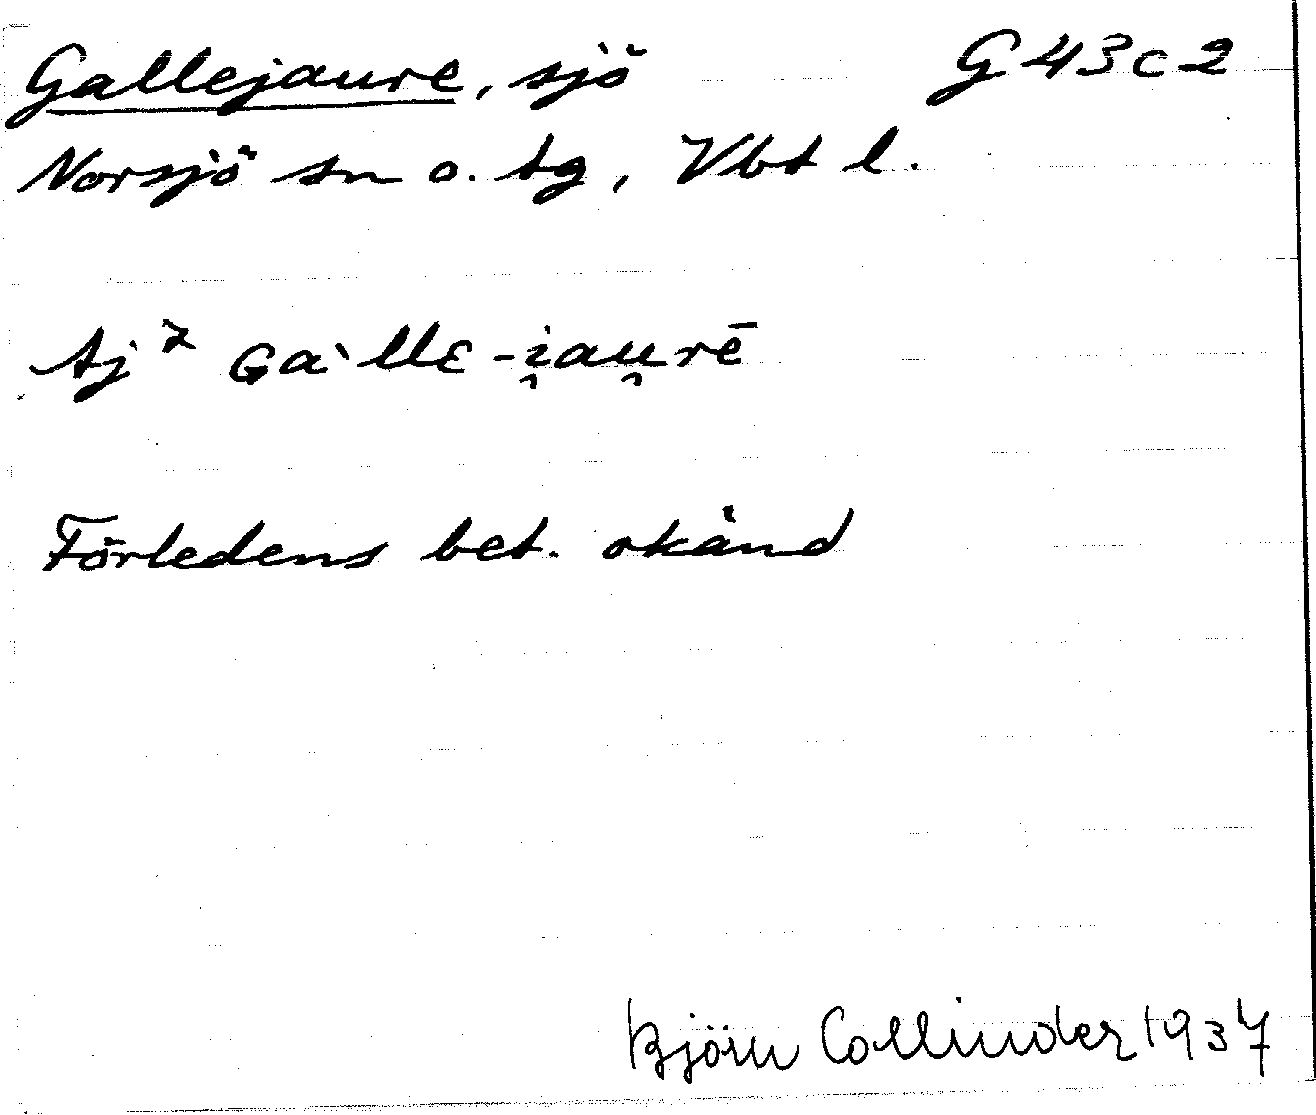 Gallejaure, sjö G 43 c 2
Norsjö sn o. tg, Vbt l.
Aj⁷ Gaˋllɛ-i̯au̯rē
Förledens bet. okänd
Björn Collinder 1937